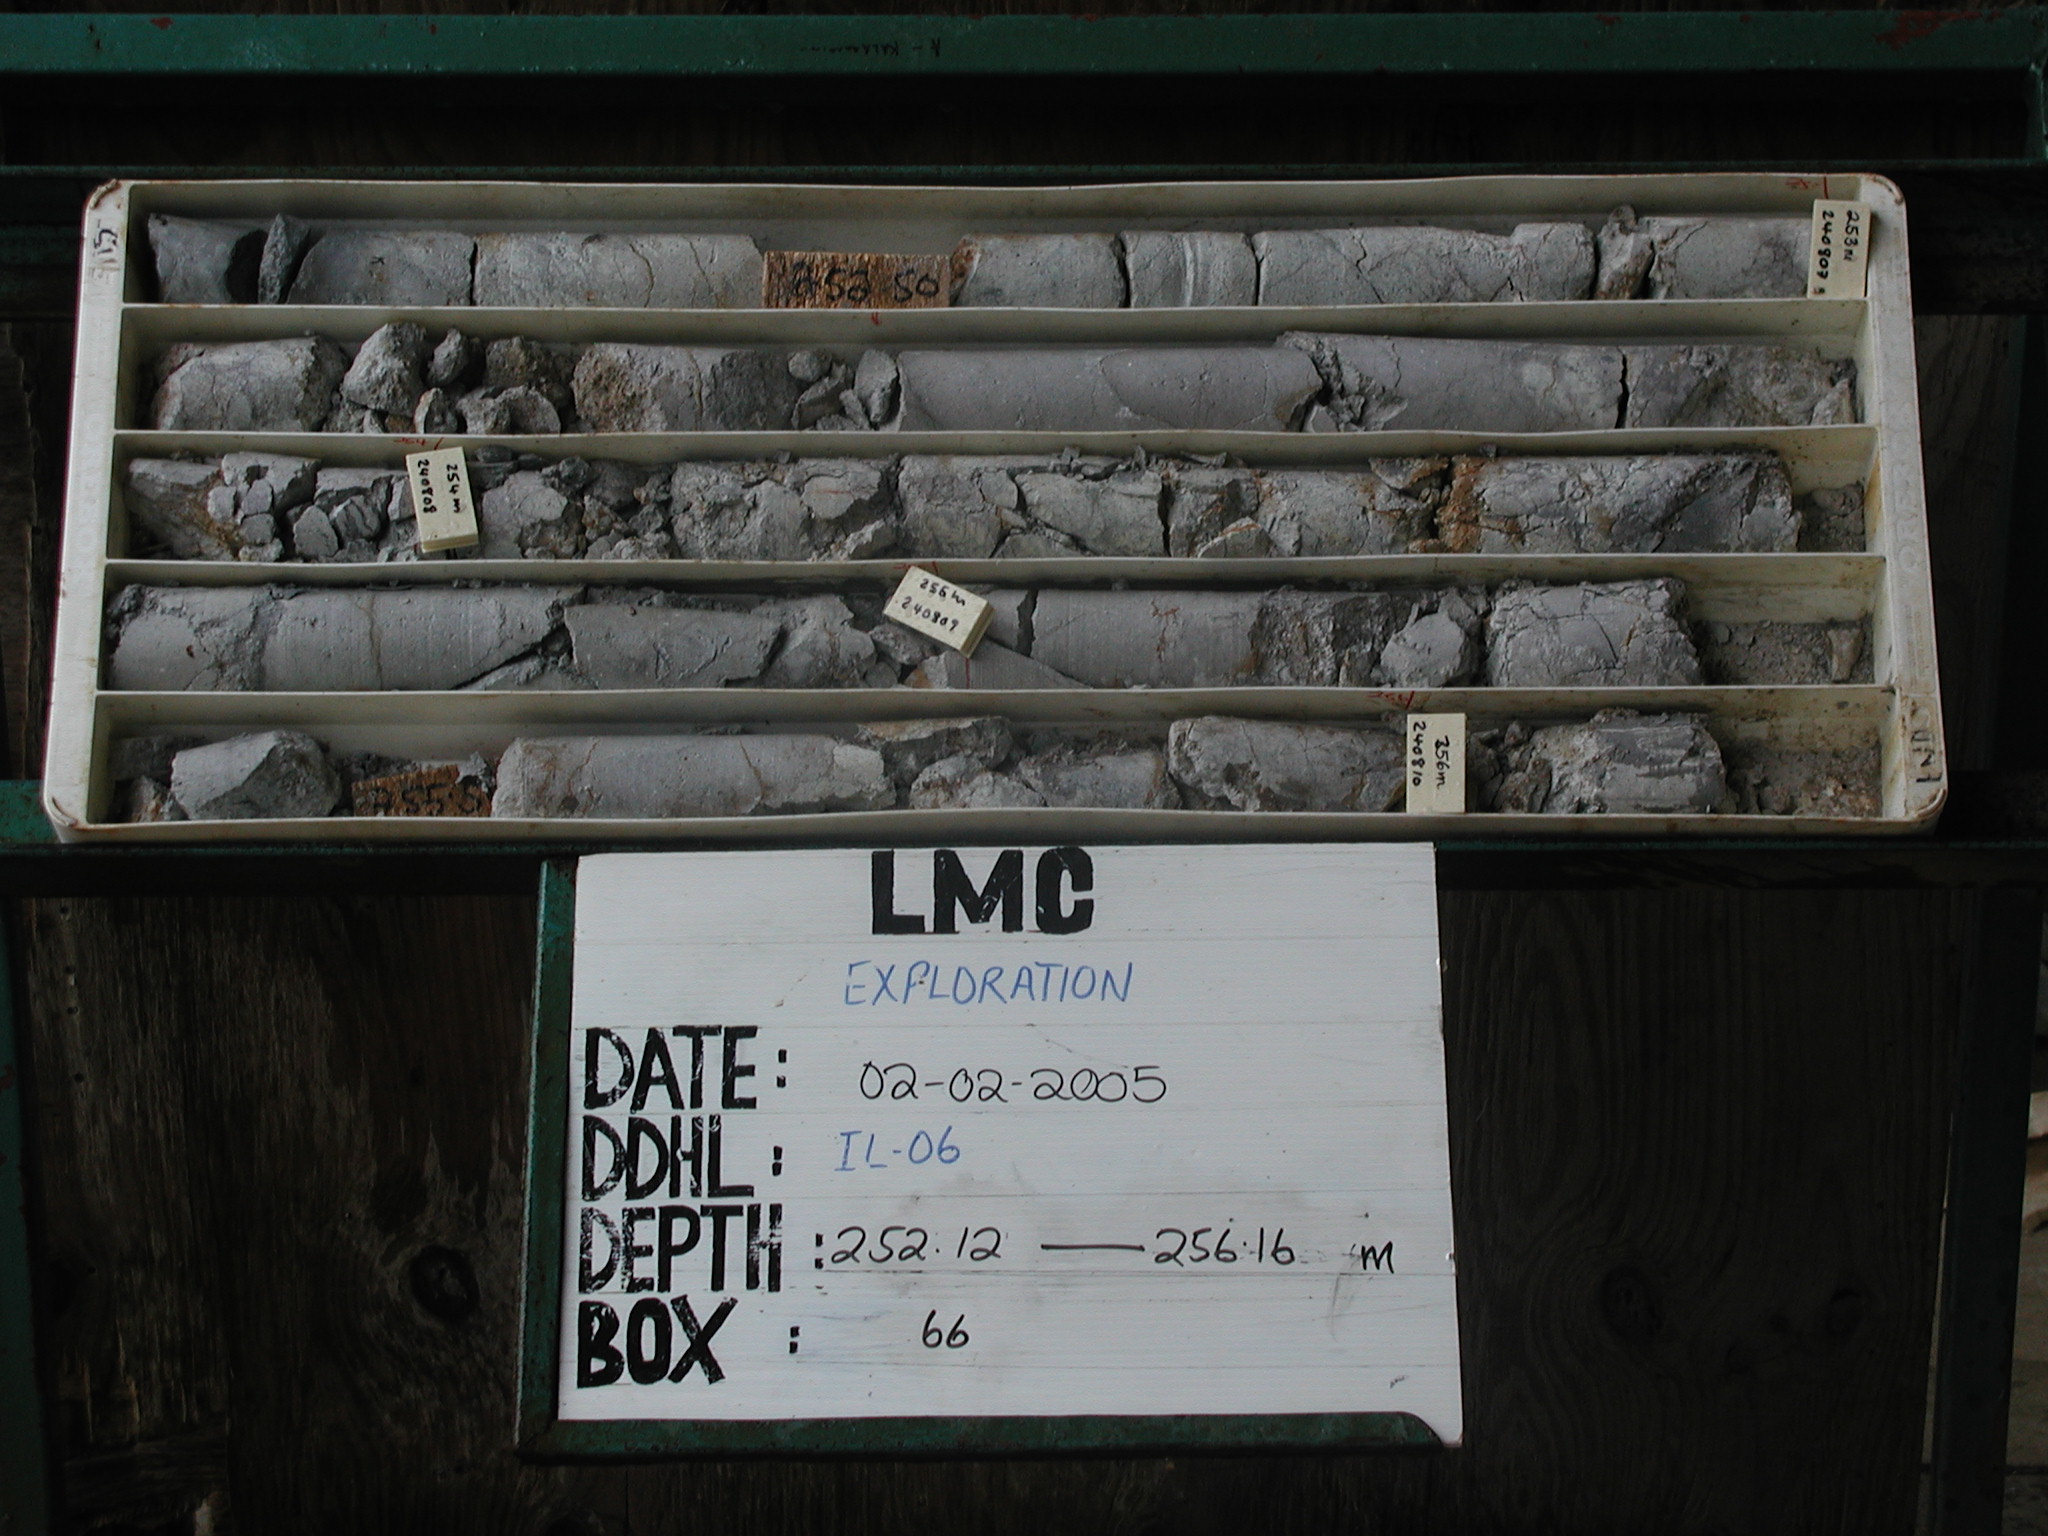 253m
240807
252 50
254m
240808
255m
240809
255 5
256m
240810
LMC
EXPLORATION
DATE: 02-02-2005
DDHL: IL-06
DEPTH: 252.12 — 256.16 m
BOX: 66